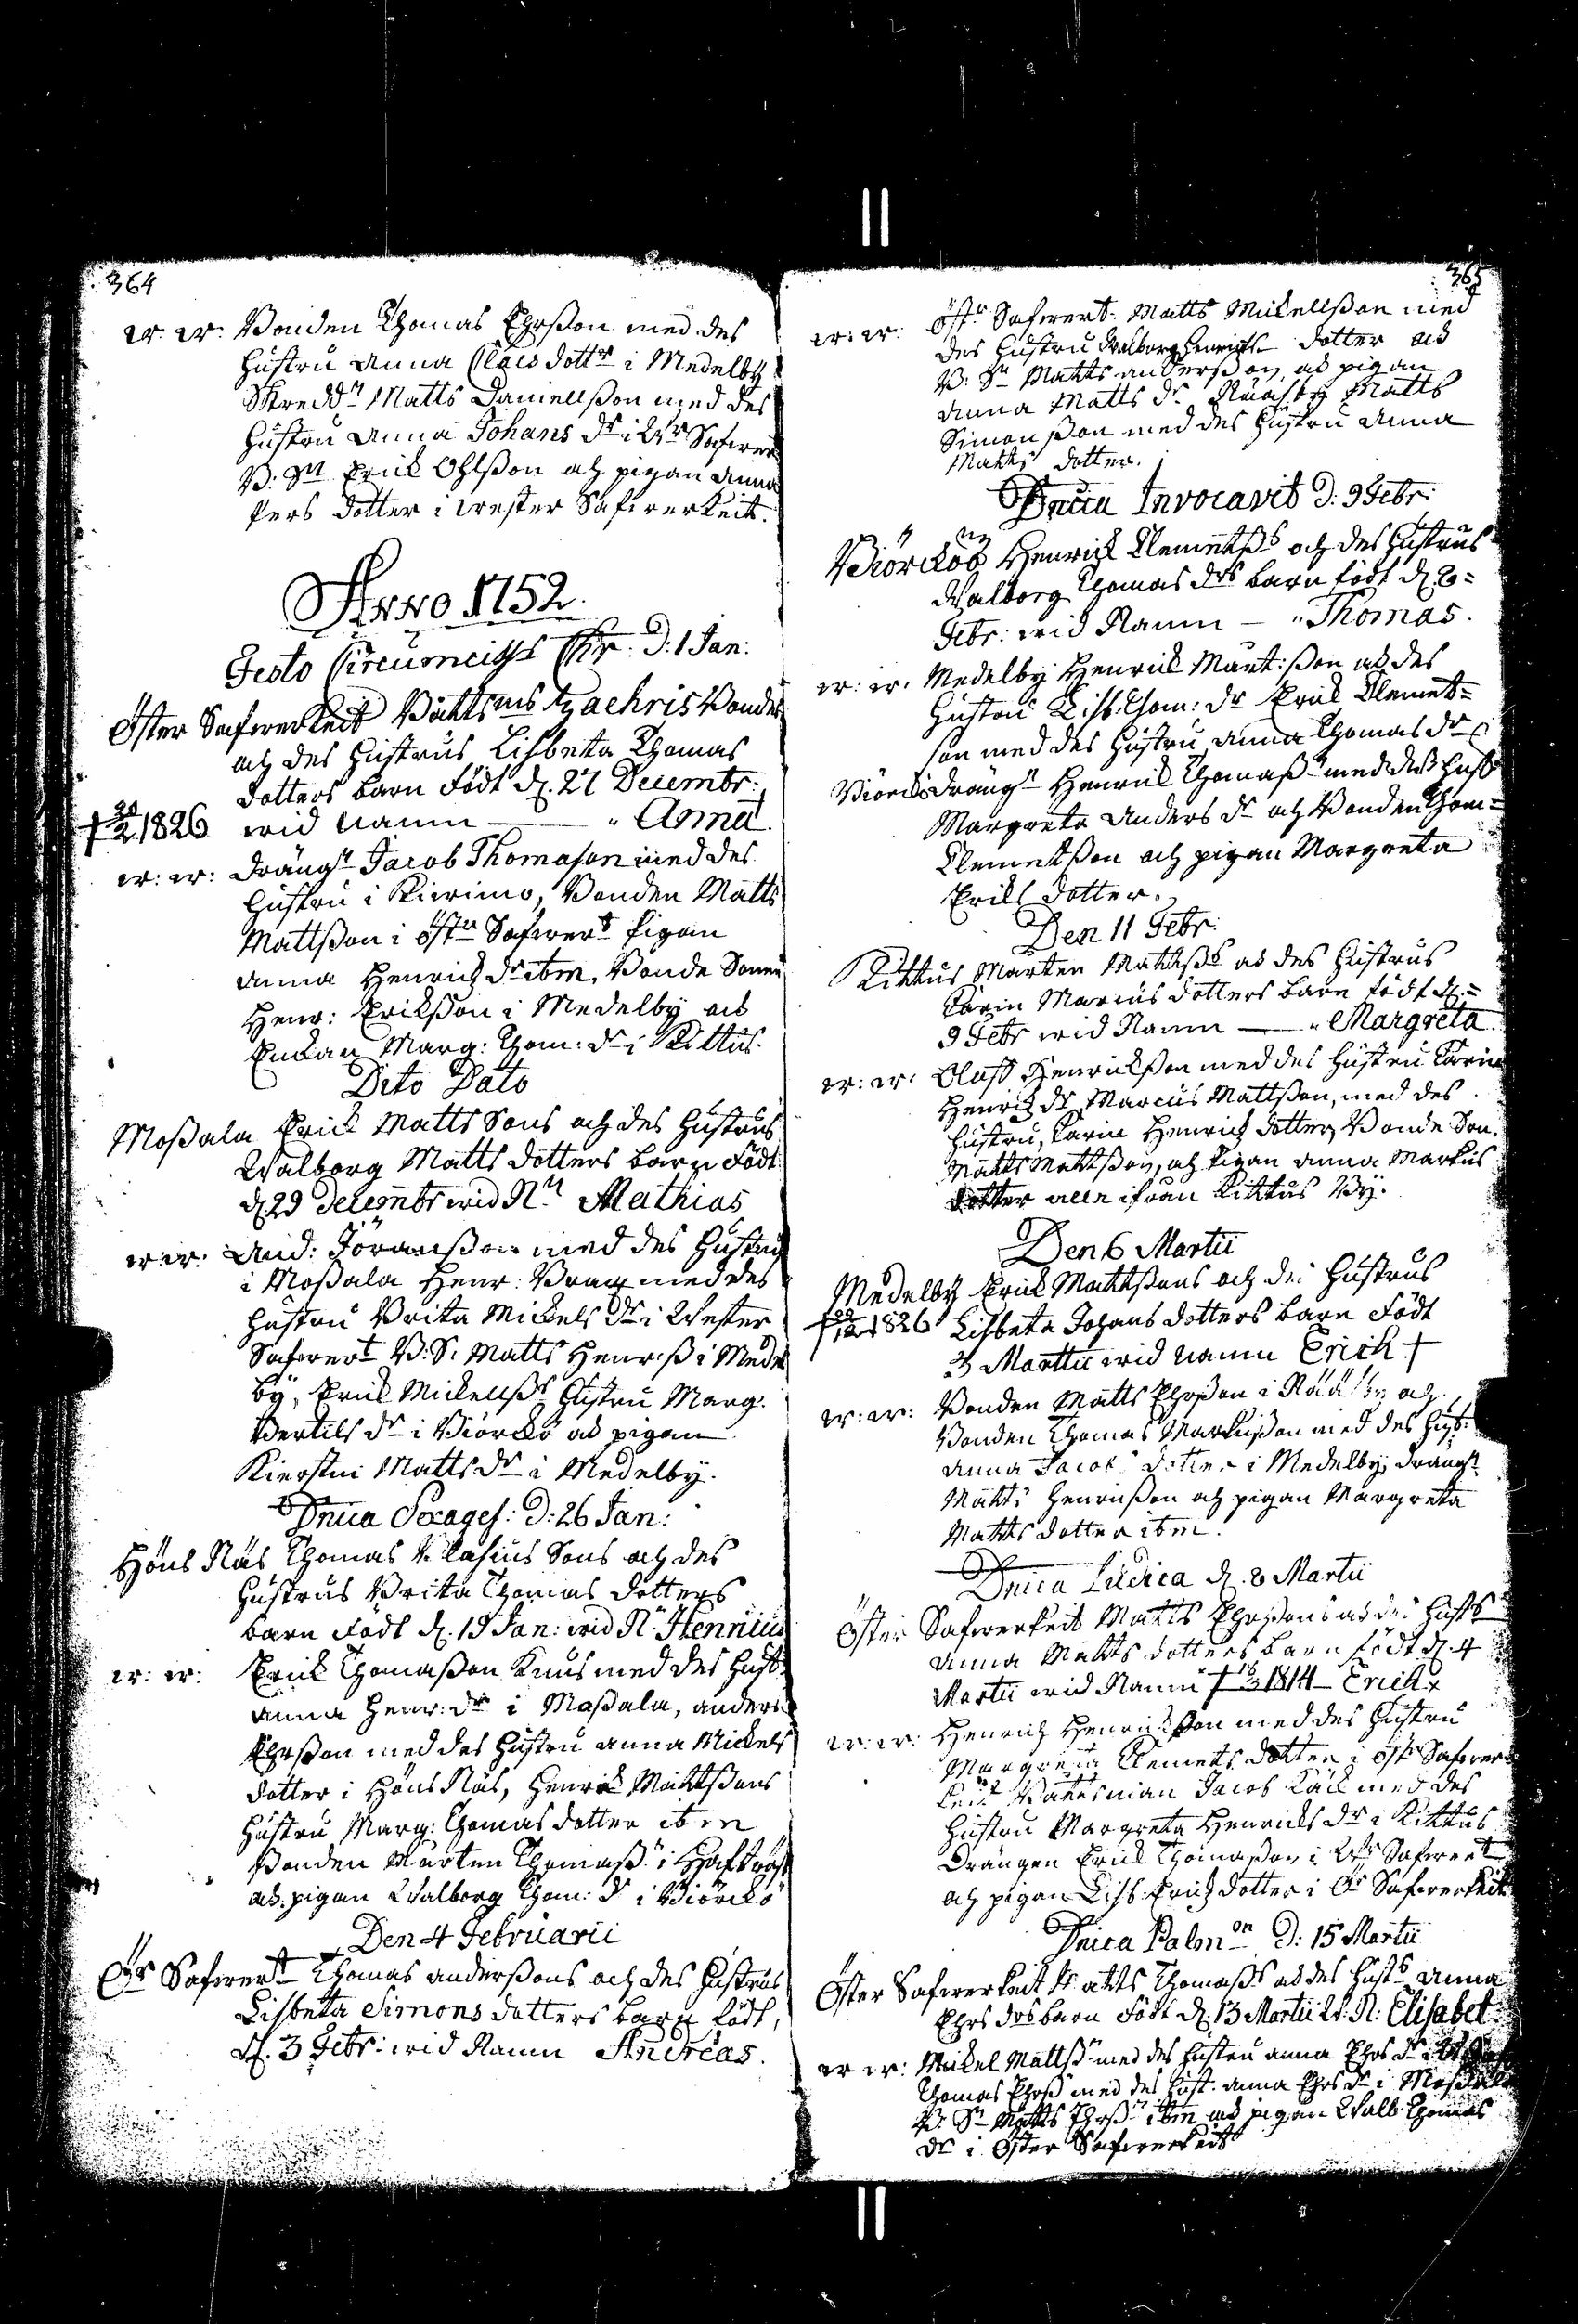 364
w: w: Bonden Thomas Ehrsson med des
hustru Anna Claes dottr i Medelby
Skreddn Matts Daniellsson med des
hustru Anna Johans dr i Wr Safwer
B. Sn Erick Ohlsson och pigan Anna
Pers dotter i Wester Safwerkeit.
Anno 1752.
Festo Circumcis Chr: D: 1 Jan:
Öster Safwerkeit Båttsms Zachris Bonder
och des hustrus Lisbeta Thomas
dotters barn Födt d. 27 Decembr:
† 2 1826 wid namn — " Anna
w: w: drängn Jacob Thomason med des
hustru i Kivimo, Bonden Matts
Mattsson i östr Safwert Pigan
Anna Henrichs dr ibm. Bonde Sonen
Henr: Eriksson i Medelby och
Enkan Marg: Thom: dr i Kittus.
Dito Dato
Mossala Erick Matts Sons och des hustrus
Walborg Matts dotters barn Födt
d. 29 Decembr wid Nn Mathias
w: w: And: Jöransson med des hustru
i Mossala Henr: Brax med des
hustru Brita Mickels dr i Wester
Safwert B: S: Matts Henr:ss i Medel
by, Erick Mickellss hustru Marg:
Bertils dr i Biörckö och pigan
Kierstin Matts dr i Medelby.
Dnica Sexages: D: 26 Jan:
Höns Näs Thomas Clasius Sons och des
hustrus Brita Thomas dotters
barn Födt d. 19 Jan: wid N: Henricus
w: w: Erick Thomasson Knus med des hust:
Anna Henr: dr i Mossala, Anders
Ehrsson med des hustru Anna Mickels
dotter i Höns Näs, Henrick Mattssons
hustru Marg: Thomas dotter ibm
Bonden Mårten Thomass i Hafträsk
och pigan Walborg Thom: dr i Biörckö
Den 4 Februarii
Ör Safwert Thomas Anderssons och des hustrus
Lisbeta Simons dotters barn född,
d. 3 Febr: wid Namn Andreas.
365
w: w: Östr Safwert: Matts Mickellsson med
des hustru Walborg Henrichs dotter och
B: Sn Matts Andersson, och pigan
Anna Matts dr Näasby Matts
Simonsson med des hustru Anna
Matts dotter.
Dnica Invocavit D: 9 Febr:
Biörckö Henrick Clemetss och des hustrus
Walborg Thomas drs barn födt d. 8
Febr: wid Namn — " Thomas.
w: w. Medelby Henrick Mårt:sson och des
hustru Lisb. Thom: dr Erick Clemet=
son med des hustru Anna Thomas dr i
Biörckö drängn Henrick Thomass med des hust
Margreta Anders dr och Bonden Thom=
Clemetsson och pigan Margreta
Ericks dotter.
Den 11 Febr:
Kittus Marten Mattss och des hustrus
Karin Marcus dotters barn födt d.=
9 Febr wid Namn — " Margreta
w: w: Oloff Henricksson med des hustru Karin
Henrichs dr Marcus Mattsson, med des
hustru, Karin Henrichs dotter, Bonde Son.
Matts Mattsson, och Pigan Anna Markus
dotter alle ifrån Kittus By.
Den 6 Martii
Medelby Erick Mattssons och des hustrus
† 22 12 1826 Lisbeta Johans dotters barn Födt
3 Martii wid namn Erich †
w: w: Bonden Matts Ehrsson i Nääsby och
Bonden Thomas Markusson med des hust:
Anna Jacobs dotter i Medelby, drängn
Matts Henricsson och pigan Margreta
Matts dotter ibm.
Dnica Judica d. 8 Martii
Öster Safwerkeit Matts Ehrssons och des husts
Anna Matts dotters barn födt d. 4
Martii wid Namn † 18 3 1814 — Erich
w: w: Henrich Henricksson med des hustru
Margreta Clemets dotter i östr Safwer
keit Båtzman Jacob Käck med des
hustru Margreta Henricks dr i Kittus
Drängen Erick Thomasson i Wr Safwert
och pigan Lisb: Erichs dotter i Ör Safwerkeit
Dnica Palmon D: 15 Martii
Öster Safwerkeit Matts Thomasss och des husts Anna
Ehrs drs barn Födt d. 13 Martii W. N: Elisabet
w w: Mickel Mattss med des hustru Anna Ehrs dr i
Thomas Ehrss med des hust: Anna Ehrs dr i Mossala
B: Sn Matts Ehrss ibm och pigan Walb: Thomas
dr i Öster Safwerkeit